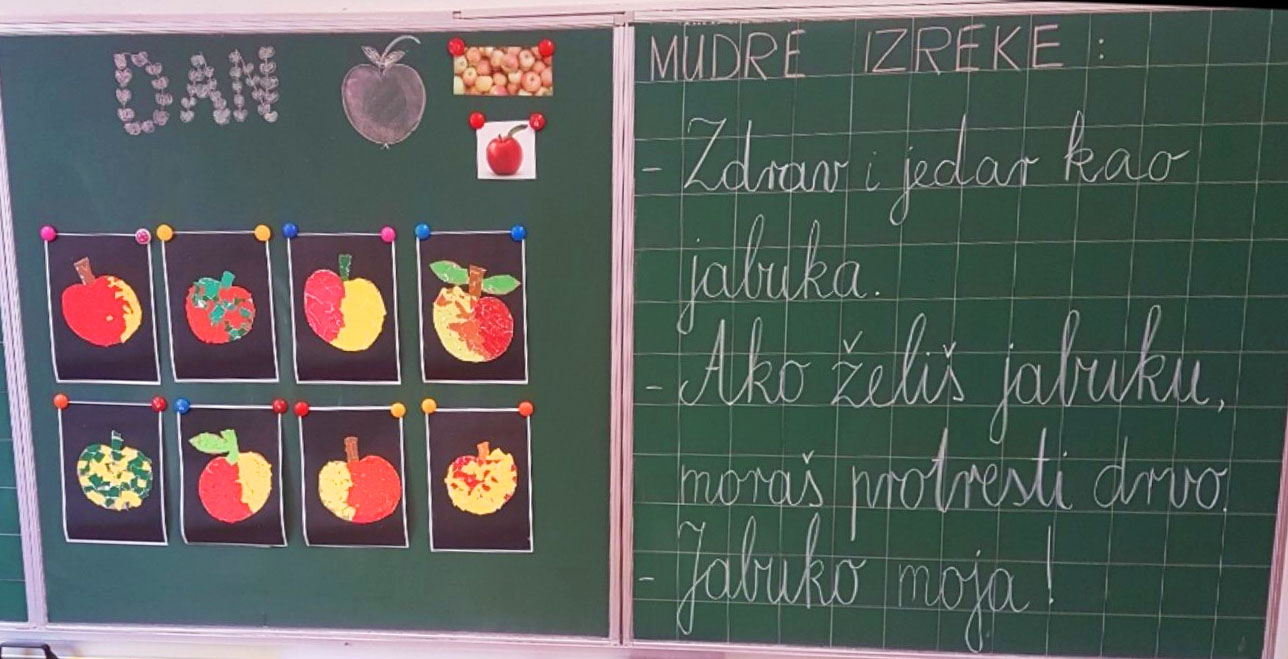 DAN
MUDRE IZREKE :
- Zdrav i jedar kao
jabuka.
- Ako želiš jabuku,
moraš protresti drvo.
- Jabuko moja!